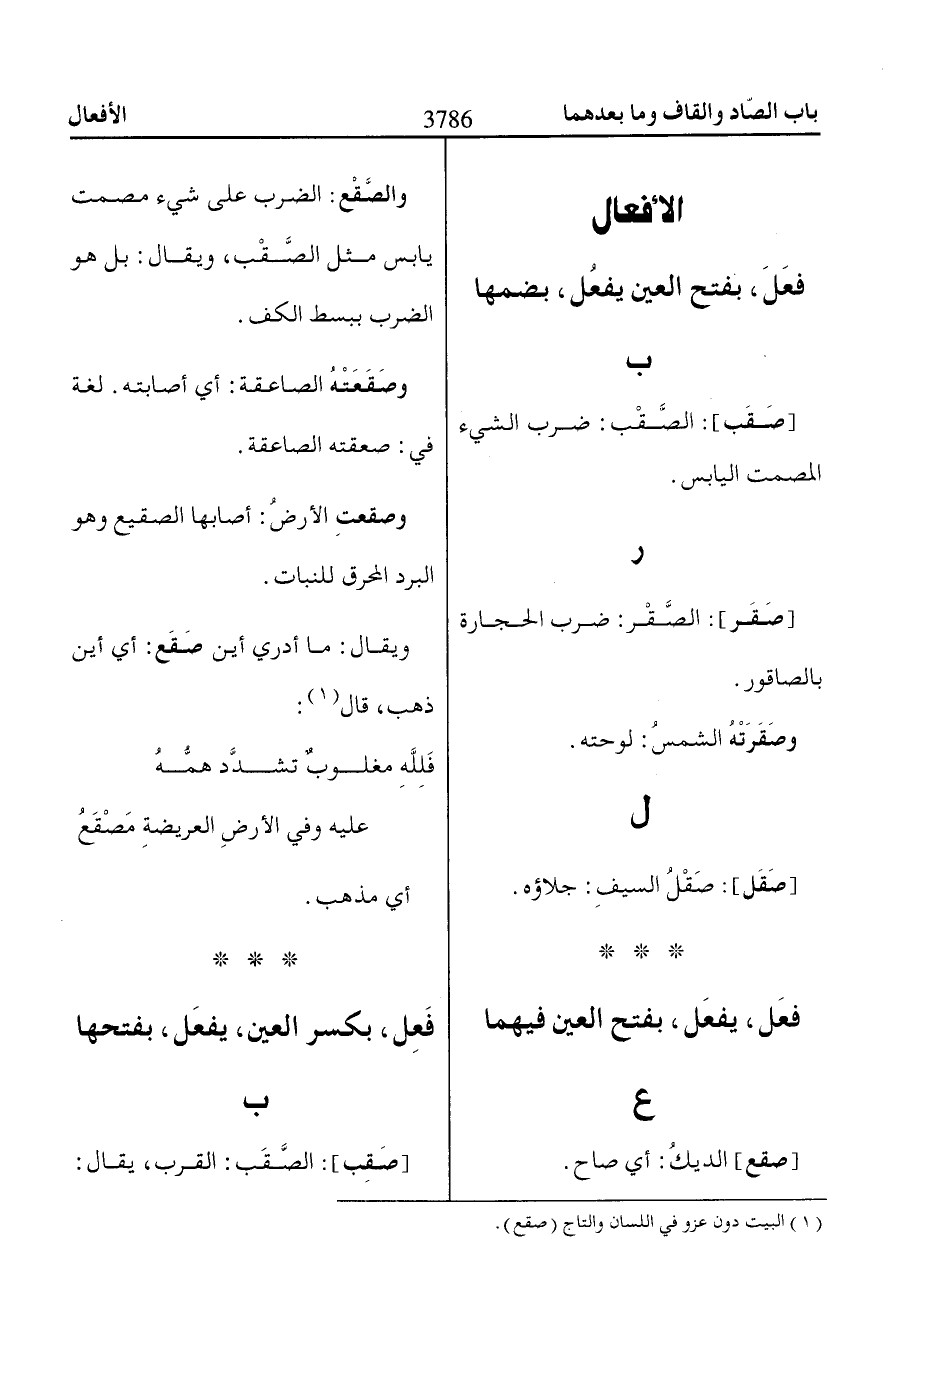 باب الصّاد والقاف وما بعدهما
3786
الأفعال
الأفعال
فعَلَ، بفتح العين يفعُل، بضمها
ب
[صَقَب]: الصَّقْب: ضرب الشيء
المصمت اليابس.
ر
[صَقَر]: الصَّقْر: ضرب الحجارة
بالصاقور.
وصَقَرَتْهُ الشمسُ: لوحته.
ل
[صَقَل]: صَقْلُ السيفِ: جلاؤه.
* * *
فعَل، يفعَل، بفتح العين فيهما
ع
[صقع] الديكُ: أي صاح.
والصَّقْع: الضرب على شيء مصمت
يابس مثل الصَّقْب، ويقال: بل هو
الضرب ببسط الكف.
وصَقَعَتْهُ الصاعقة: أي أصابته. لغة
في: صعقته الصاعقة.
وصقعتِ الأرضُ: أصابها الصقيع وهو
البرد المحرق للنبات.
ويقال: ما أدري أين صَقَع: أي أين
ذهب، قال(١):
فَلِلَّهِ مغلوبٌ تشدَّد همُّهُ
عليه وفي الأرضِ العريضةِ مَصْقَعُ
أي مذهب.
* * *
فَعِل، بكسر العين، يفعَل، بفتحها
ب
[صَقِب]: الصَّقَب: القرب، يقال:
(١) البيت دون عزو في اللسان والتاج (صقع).